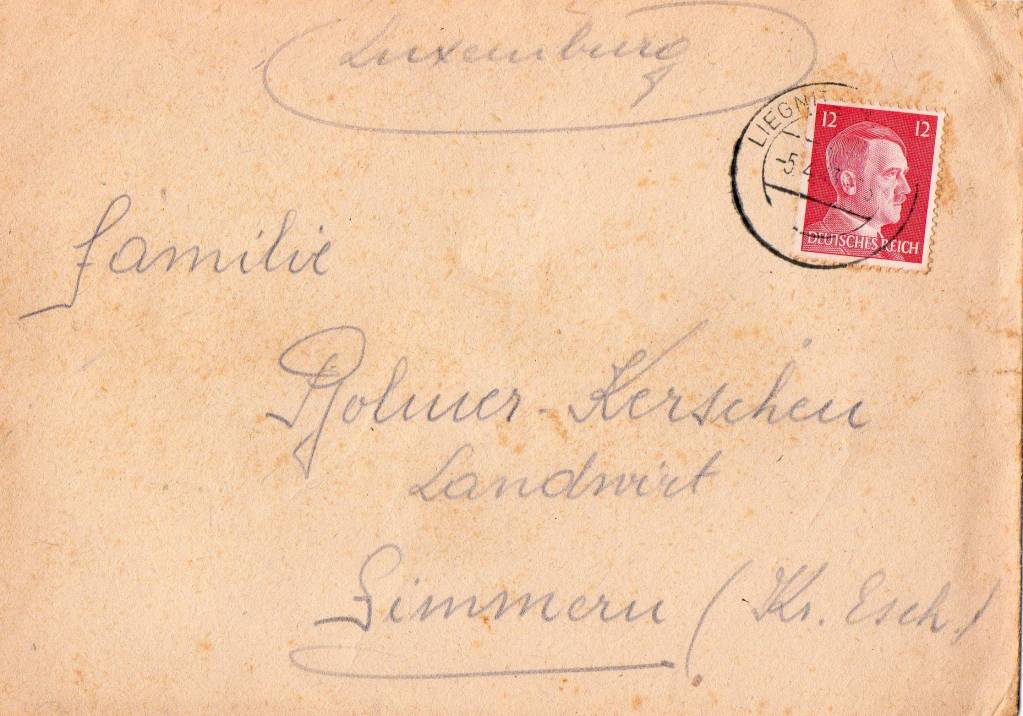 Luxemburg
LIEGNI
-5.4.
12 12
DEUTSCHES REICH
Familie
Kerschen
Landwirt
Simmern (Kr. Esch)